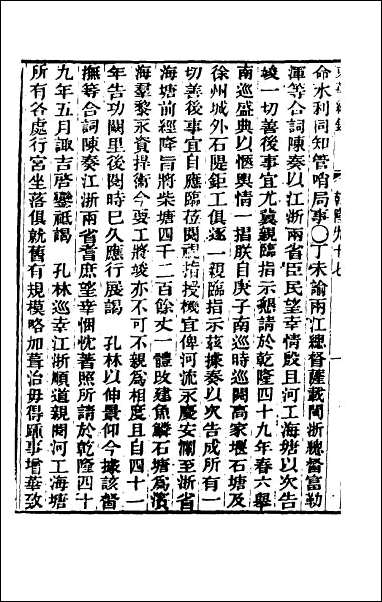 命水利同知管哨局事〇丁未諭兩江總督薩載閩浙總督富勒
渾等合詞陳奏以江浙兩省臣民望幸情殷且河工海塘以次告
竣一切善後事宜尤冀親臨指示懇請於乾隆四十九年春六舉
南巡盛典以愜輿情一摺朕自庚子南巡時巡閱高家堰石塘及
徐州城外石隄鉅工俱逐一親臨指示茲據奏以次告成所有一
切善後事宜自應臨莅閱視指授機宜俾河流永慶安瀾至浙省
海塘前經降旨將柴塘四千二百餘丈一體改建魚鱗石塘為濱
海羣黎永資捍衛今要工將竣亦不可不親為相度且自四十一
年告功闕里後閱時已久應行展謁　孔林以伸景仰今據該督
撫等合詞陳奏江浙兩省耆庶望幸悃忱著照所請於乾隆四十
九年五月諏吉啓鑾祗謁　孔林巡幸江浙順道親閱河工海塘
所有各處行宮坐落俱就舊有規模略加葺治毋得踵事增華致